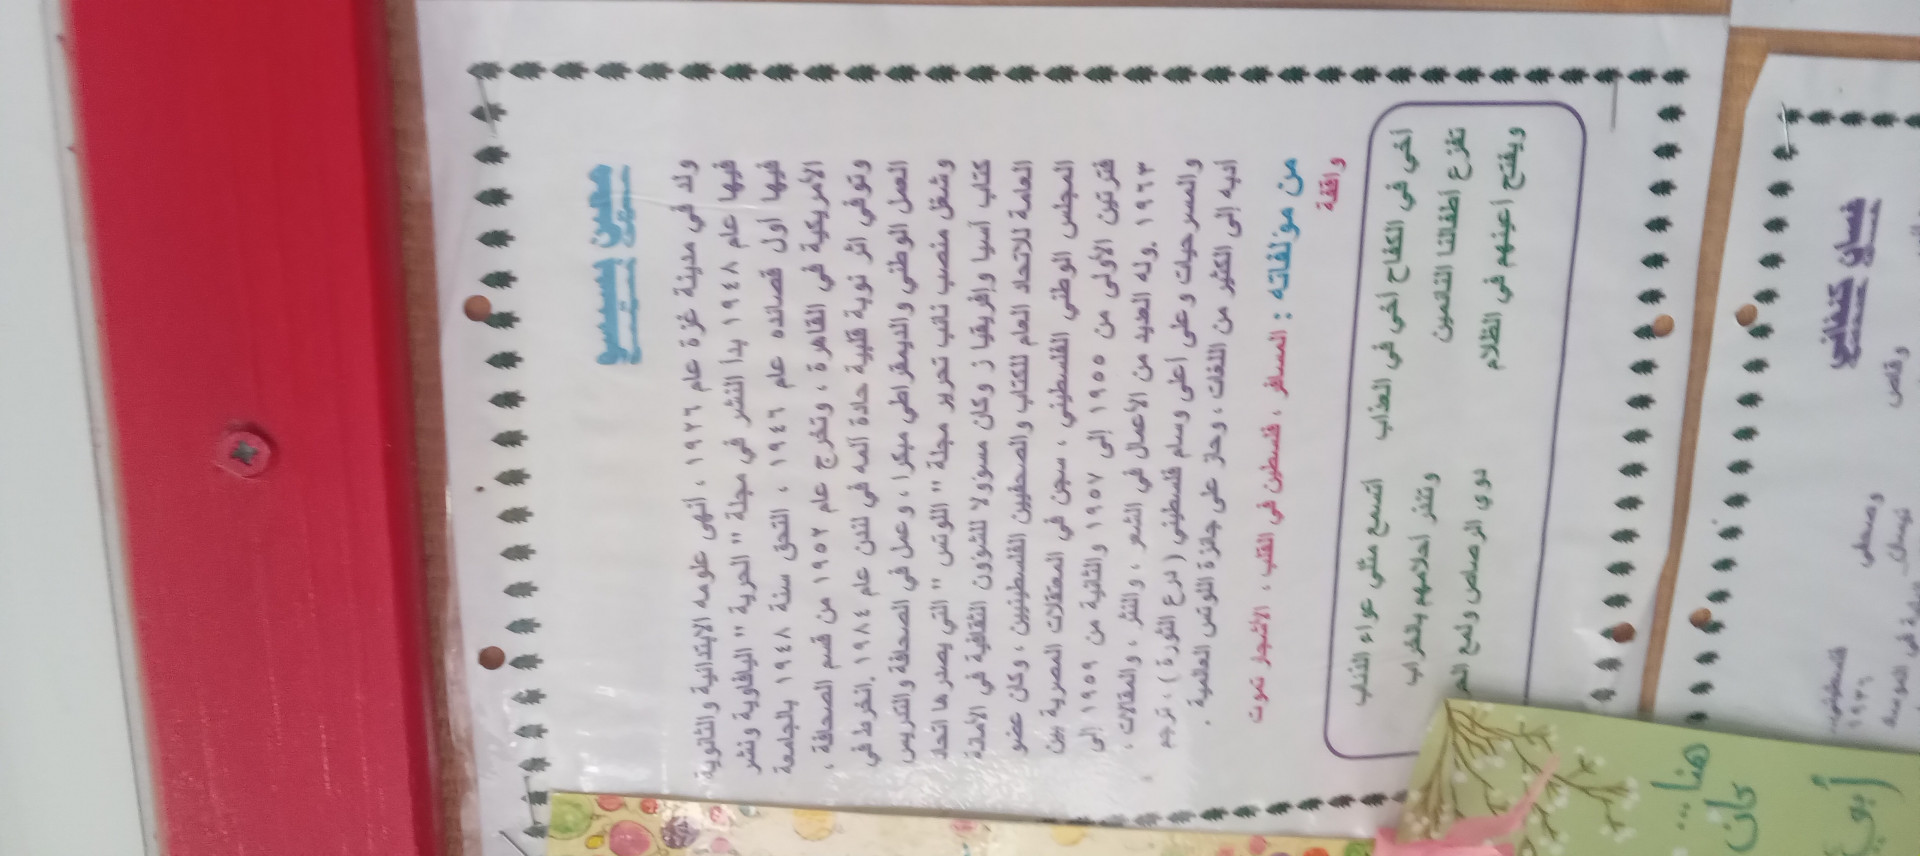 معين بسيسو
ولد في مدينة غزة عام ١٩٢٦ ، أنهى علومه الابتدائية والثانوية
فيها عام ١٩٤٨ بدأ النشر في مجلة " الحرية " اليافاوية ونشر
فيها أول قصائده عام ١٩٤٦ ، التحق سنة ١٩٤٨ بالجامعة
الأمريكية في القاهرة ، وتخرج عام ١٩٥٢ من قسم الصحافة ،
وتوفي اثر نوبة قلبية حادة ألمه في لندن عام ١٩٨٤ .انخرط في
العمل الوطني والديمقراطي مبكرا ، وعمل في الصحافة والتدريس
وشغل منصب نائب تحرير مجلة " اللوتس " التي يصدرها اتحاد
كتاب آسيا وإفريقيا ز وكان مسؤولا للشؤون الثقافية في الأمانة
العامة للاتحاد العام للكتاب والصحفيين الفلسطينيين ، وكان عضو
المجلس الوطني الفلسطيني ، سجن في المعتقلات المصرية بين
فترتين الأولى من ١٩٥٥ إلى ١٩٥٧ والثانية من ١٩٥٩ إلى
١٩٦٣ .وله العديد من الأعمال في الشعر ، والنثر ، والمقالات ،
والمسرحيات وعلى أعلى وسام فلسطيني ( درع الثورة ) ، ترجم
أدبه إلى الكثير من اللغات ، وحاز على جائزة اللوتس العالمية .
من مؤلفاته : المسافر ، فلسطين في القلب ، الأشجار تموت
واقفة
أخي في الكفاح أخي في العذاب أتسمع مثلي عواء الذئاب
تفزع أطفالنا النائمين وتنذر أحلامهم بالخراب
ويفتح أعينهم في الظلام دوي الرصاص ولمع
غسان كنفاني
وقاص
وصحفي
هنا ...
كان